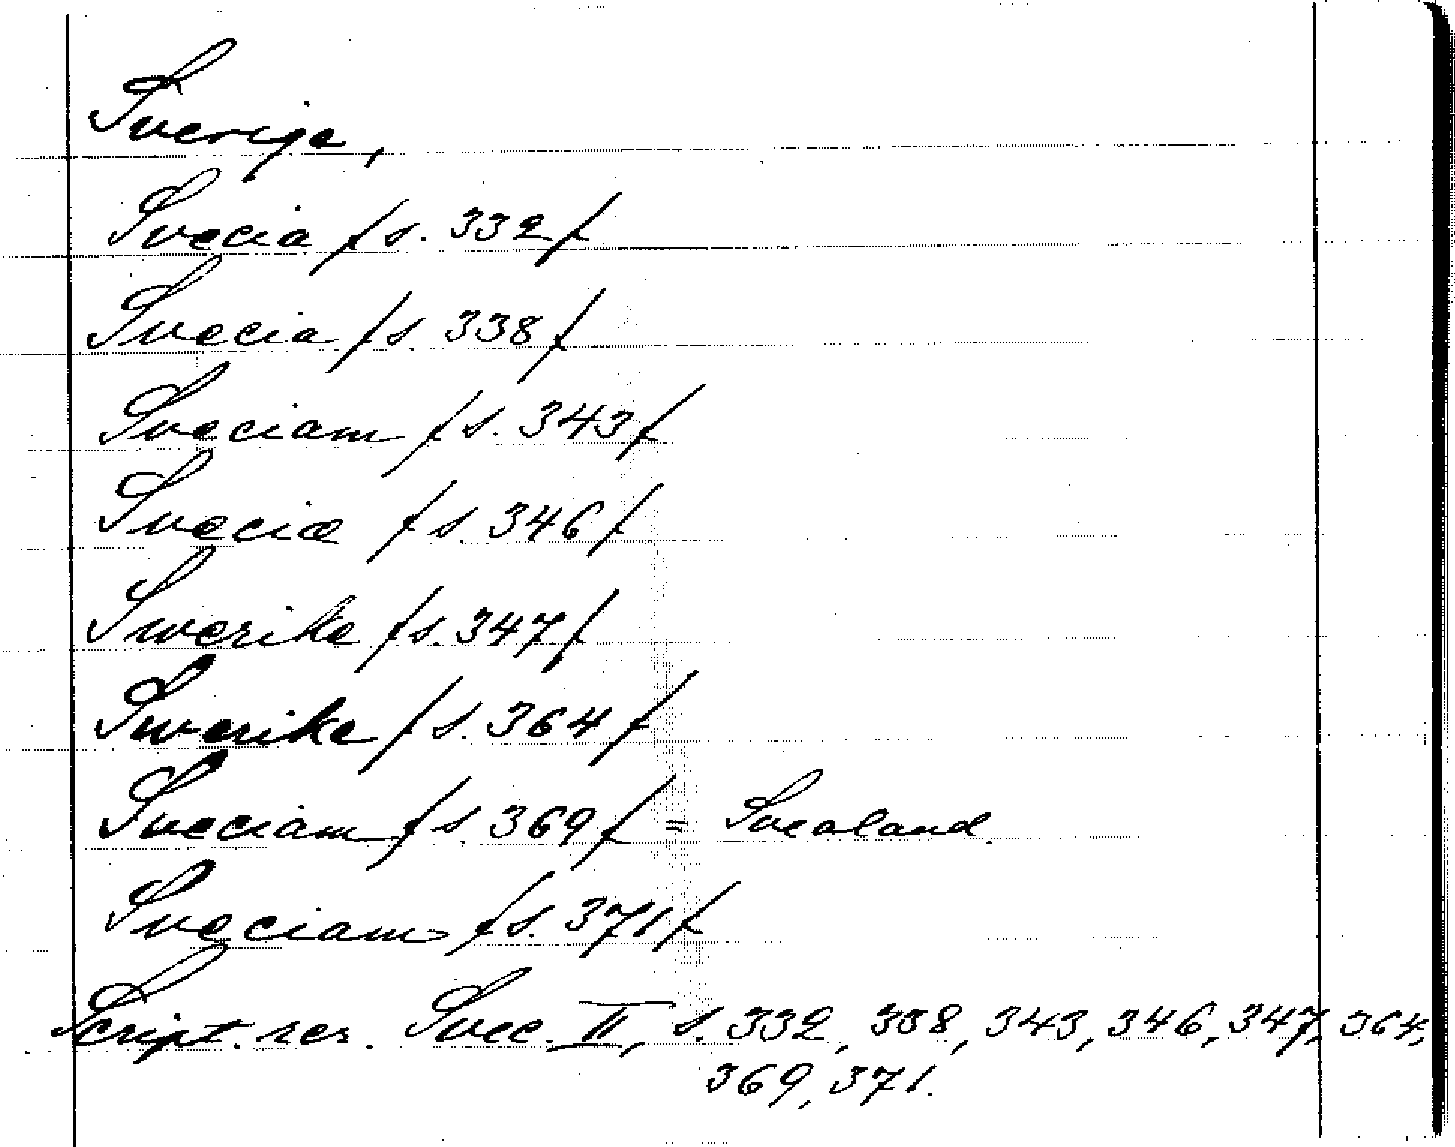 Sverige,
Svecia /s. 332/
Svecia /s. 338/
Sveciam /s. 343/
Sveciæ /s. 346/
Swerike /s. 347/
Swerike /s. 364/
Sveciam /s. 369/ = Svealand
Sveciam /s. 371/
Script. rer. Svec. II, s. 332, 338, 343, 346, 347, 364,
369, 371.